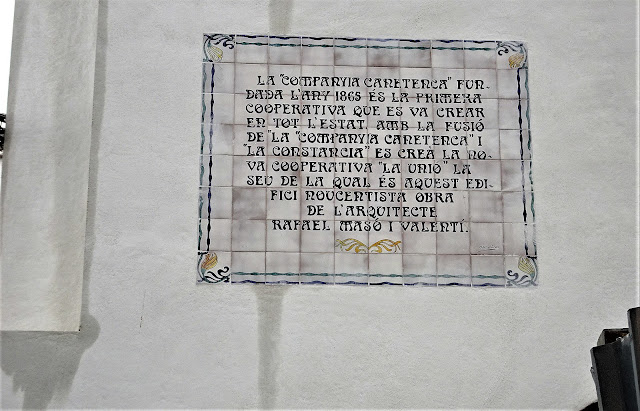 LA "COMPANYIA CANETENCA" FUN-
DADA L'ANY 1865 ÉS LA PRIMERA
COOPERATIVA QUE ES VA CREAR
EN TOT L'ESTAT. AMB LA FUSIÓ
DE "LA "COMPANYIA CANETENCA" I
"LA CONSTANCIA" ES CREA LA NO-
VA COOPERATIVA "LA UNIÓ" LA
SEU DE LA QUAL ÉS AQUEST EDI-
FICI NOUCENTISTA OBRA
DE L'ARQUITECTE
RAFAEL MASÓ I VALENTÍ.